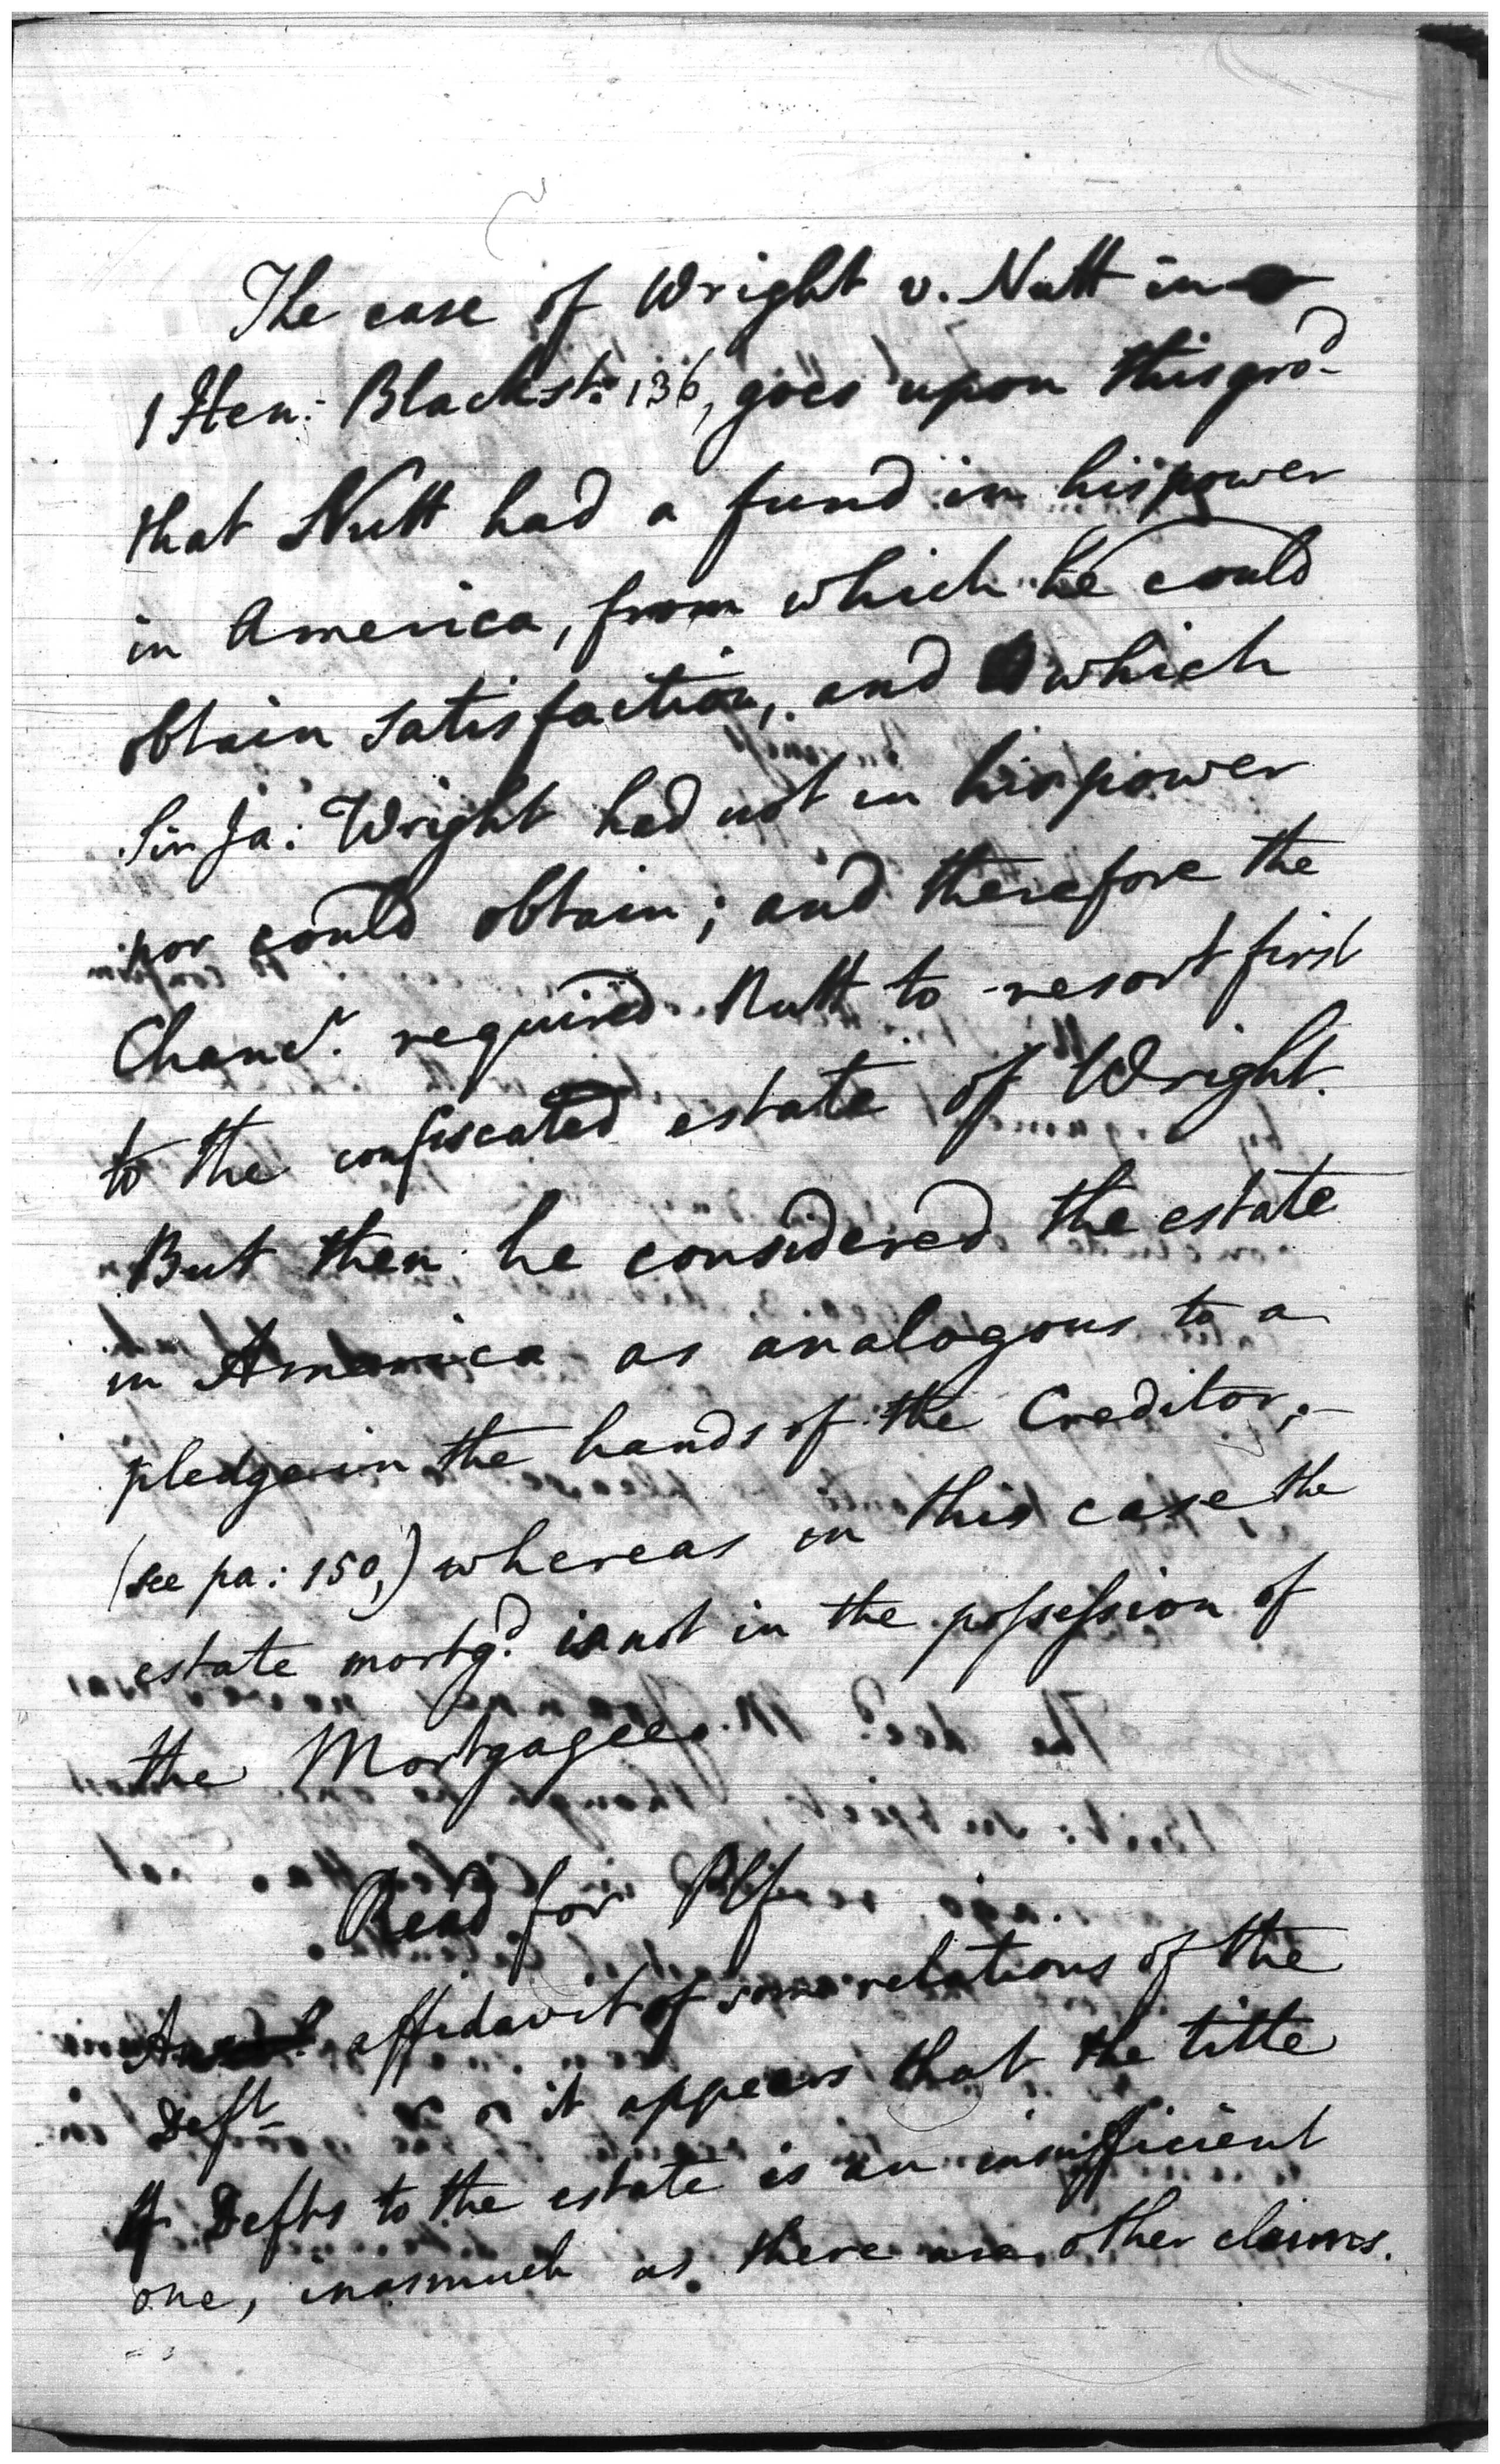 The case of Wright v. Nutt in
1 Hen: Blackst: 136, goes upon this gro^d
that Nutt had a fund in his power
in America, from which he could
obtain satisfaction, and which
Sir Ja: Wright had not in his power
nor could obtain; and therefore the
Chanc^r. required Nutt to resort first
to the confiscated estate of Wright.
But then he considered the estate
in America as analogous to a
pledge in the hands of the Creditor,
(see pa: 150,) whereas in this case the
estate mortg^d. is not in the possession of
the Mortgagees.
Read for Plf
An affidavit of some relations of the
Deft it appears that the title
of Defts to the estate is an insufficient
one, inasmuch as there are other claims.